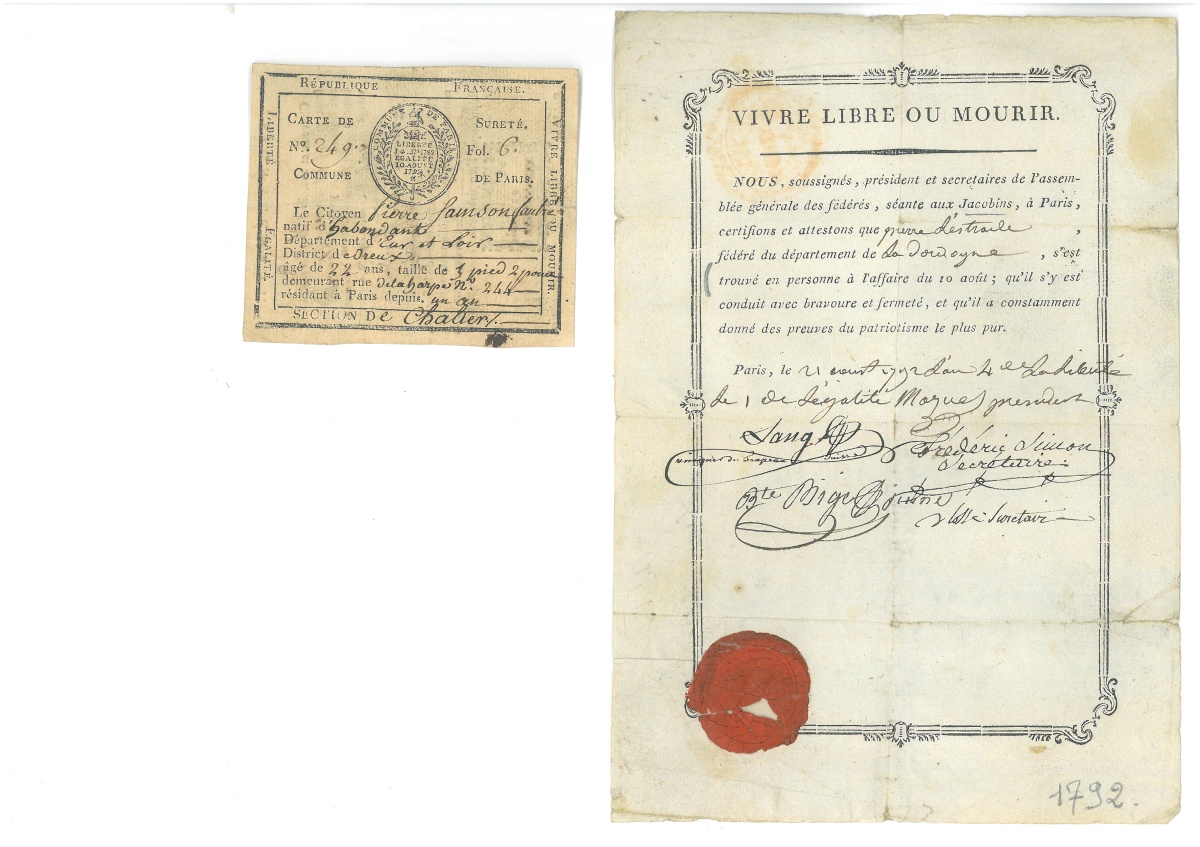 RÉPUBLIQUE FRANÇAISE.
LIBERTÉ ÉGALITÉ.
VIVRE LIBRE OU MOURIR.
CARTE DE SURETÉ.
COMMUNE DE PARIS
LIBERTÉ
14 1789
EGALITÉ
10 AOUST
1792
N°. 249. Fol. 6.
COMMUNE DE PARIS.
Le Citoyen Pierre Samson
natif d'habondant
Département d'Eur et Loir
District de Dreux
âgé de 22 ans, taille de 5 pied 2 pouce
demeurant rue Delaharpe N°. 244
résidant à Paris depuis un an
SECTION DE Chalier
VIVRE LIBRE OU MOURIR.
NOUS, soussignés, président et secretaires de l'assem-
blée générale des fédérés, séante aux Jacobins, à Paris,
certifions et attestons que pierre Lestrade,
fédéré du département de La dordogne, s'est
trouvé en personne à l'affaire du 10 août; qu'il s'y est
conduit avec bravoure et fermeté, et qu'il a constamment
donné des preuves du patriotisme le plus pur.
Paris, le 21 aoust 1792 l'an 4 de La Liberté
Le 1 de Légalité president
Lang Frédéric Simon
du drapeau Suisse Secrétaire
Secretaire
1792.